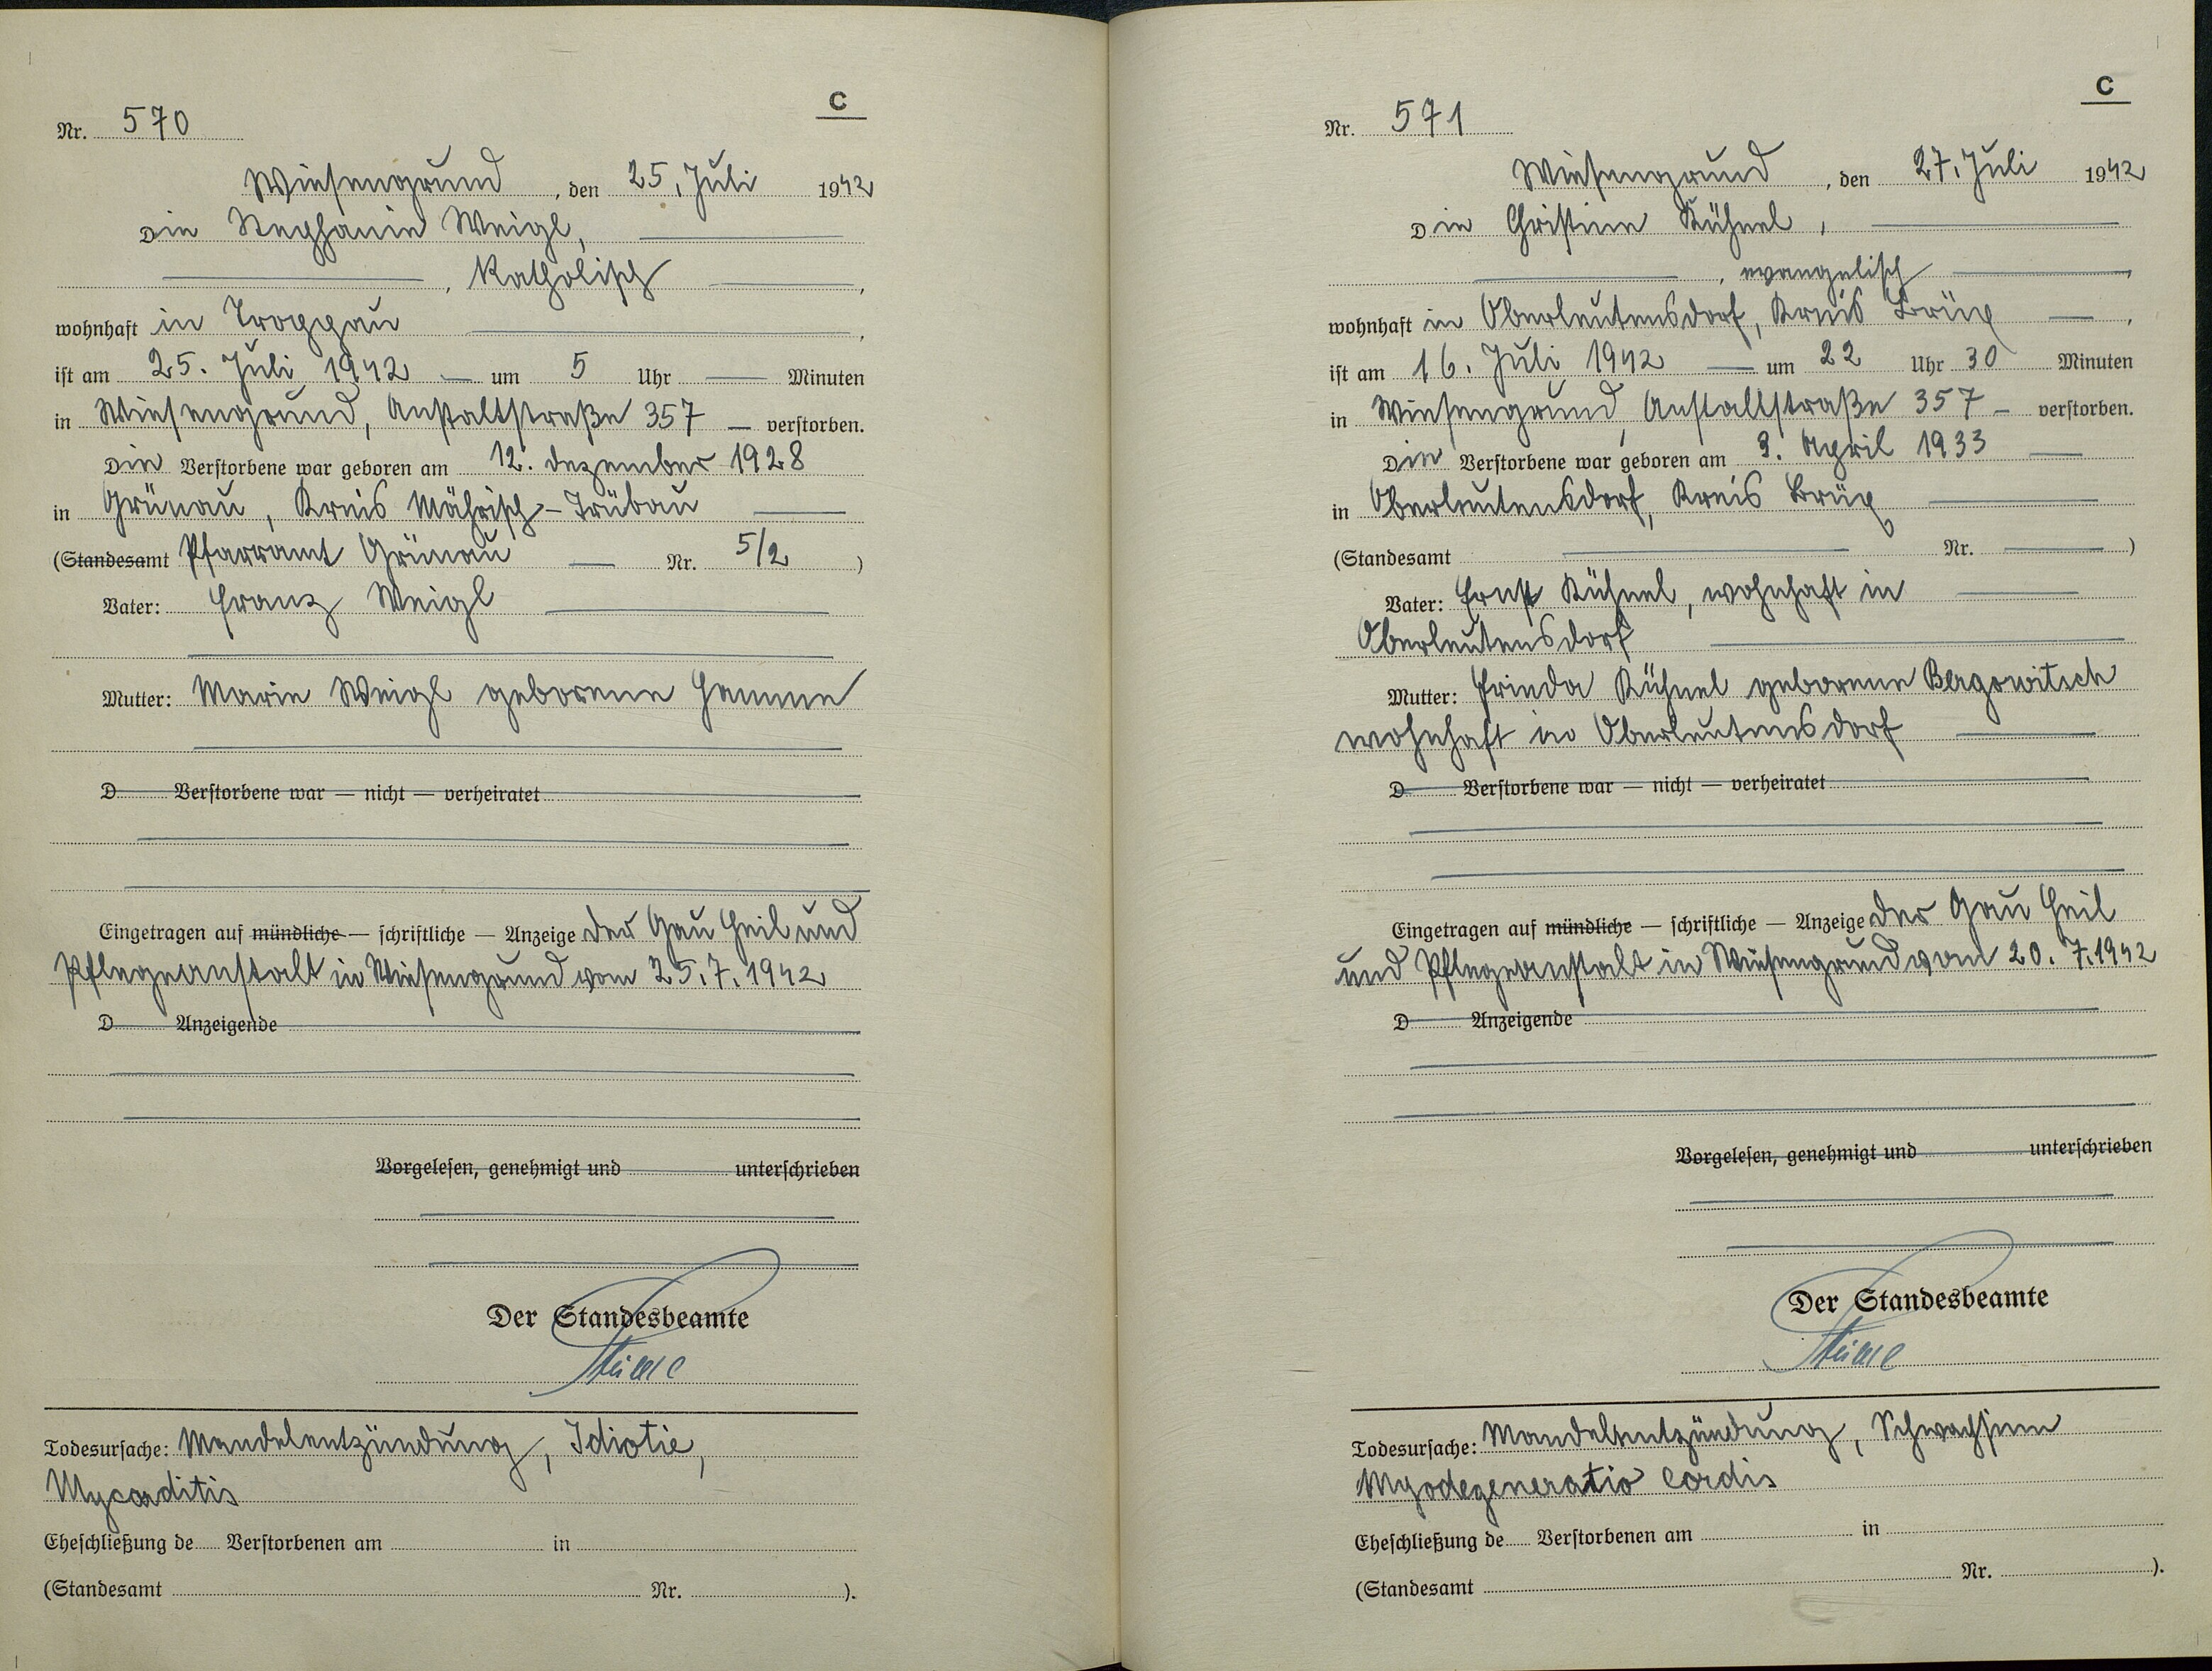 C
Nr. 570
Wiesengrund, den 25. Juli 1942
Die Stephanie Weigl,
, katholisch ,
wohnhaft in Troppau ,
ist am 25. Juli 1942 — um 5 Uhr — Minuten
in Wiesengrund, Anstaltstraße 357 — verstorben.
Die Verstorbene war geboren am 12. Dezember 1928
in Grünau, Kreis Mährisch-Trübau
(Standesamt Pfarramt Grünau — Nr. 5/2 )
Vater: Franz Weigl
Mutter: Marie Weigl geborene
D Verstorbene war — nicht — verheiratet
Eingetragen auf mündliche — schriftliche — Anzeige der Gau Heil und
Pflegeanstalt in Wiesengrund vom 25.7.1942
D Anzeigende
Vorgelesen, genehmigt und unterschrieben
Der Standesbeamte
Todesursache: Mandelentzündung, Idiotie,
Mycarditis
Eheschließung de Verstorbenen am in
(Standesamt Nr. ).
C
Nr. 571
Wiesengrund, den 27. Juli 1942
Die Christine Kühnel,
, evangelisch ,
wohnhaft in Oberleutensdorf, Kreis Brüx — ,
ist am 16. Juli 1942 — um 22 Uhr 30 Minuten
in Wiesengrund, Anstaltstraße 357 — verstorben.
Die Verstorbene war geboren am 9. April 1933 —
in Oberleutensdorf, Kreis Brüx
(Standesamt Nr. )
Vater: Ernst Kühnel, wohnhaft in
Oberleutensdorf
Mutter: Kühnel geborene Bergowitsch
wohnhaft in Oberleutensdorf
D Verstorbene war — nicht — verheiratet
Eingetragen auf mündliche — schriftliche — Anzeige der Gau Heil
und Pflegeanstalt in Wiesengrund vom 20.7.1942
D Anzeigende
Vorgelesen, genehmigt und unterschrieben
Der Standesbeamte
Todesursache: Mandelentzündung, Schwachsinn
Myodegeneratio cordis
Eheschließung de Verstorbenen am in
(Standesamt Nr. ).